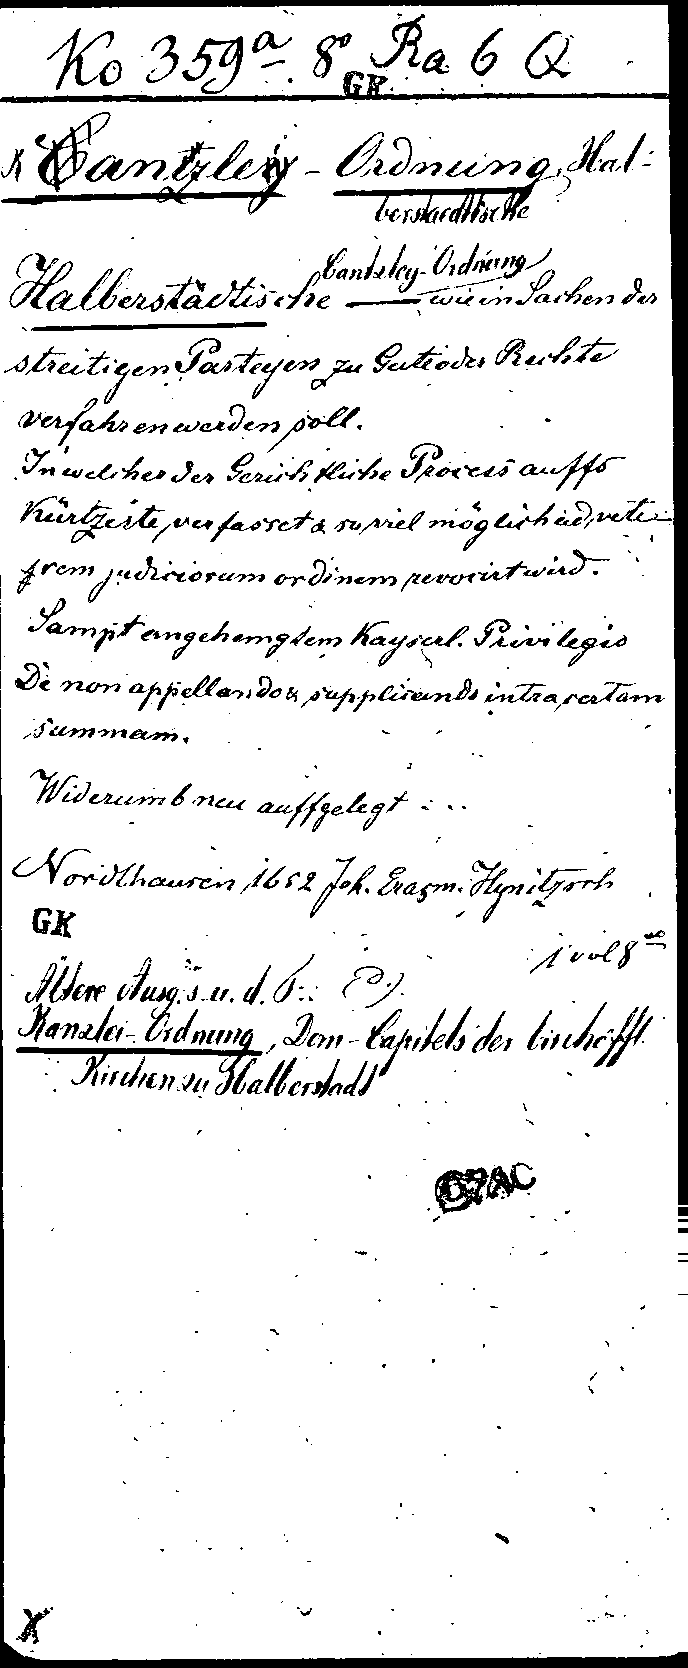 Ko 359a. 8° Ra 6 Q
GK
K Cantzley - Ordnung, Hal-
berstaedtische
Cantzley-Ordnung
Halberstädtische —— wie in Sachen der
streitigen Parteyen zu Güte oder Rechte
verfahren werden soll.
In welcher der Gerichtliche Process auffs
Kürtzeste verfasset & so viel möglich ad vete-
rem judiciorum ordinem revocirt wird.
Sampt angehengtem Kayserl. Privilegio
De non appellando & supplicando intra certam
summam.
Widerumb neu auffgelegt ...
Nordthausen 1652 Joh. Erasm. Hynitzsch
GK
1 vol 8vo
Ältere Ausg. s. u. d. T.:
Kanzlei-Ordnung, Dom-Capitels der bischöffl.
Kirchen zu Halberstadt
X